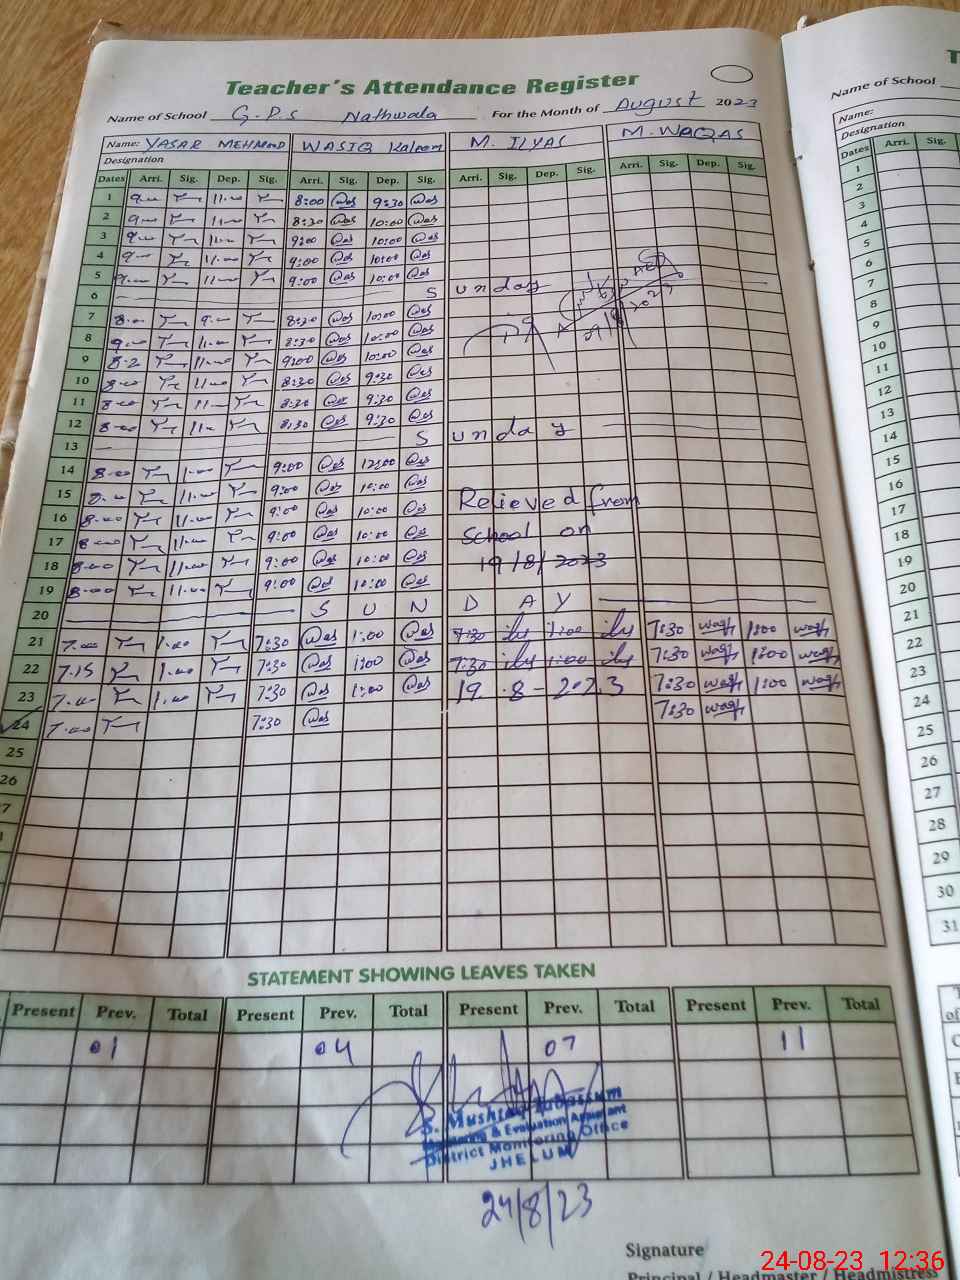 Teacher's Attendance Register
Name of School G.P.S Nathwala For the Month of August 2023
Name: YASAR MEHMOOD WASIQ Kaleem M. ILYAS M. WAQAS
Designation
Dates Arri. Sig. Dep. Sig. Arri. Sig. Dep. Sig. Arri. Sig. Dep. Sig. Arri. Sig. Dep. Sig.
1 9-00 11-00 8:00 Was 9:30 Was
2 9-00 11-00 8:30 Was 10:00 Was
3 9-00 11-00 9:00 Was 10:00 Was
4 9-00 11-00 9:00 Was 10:00 Was
5 9-00 11-00 9:00 Was 10:00 Was
6 Sunday
7 8-00 9-00 8:30 Was 10:00 Was
8 9-00 11-00 8:30 Was 10:00 Was
9 11-00 9:00 Was 10:00 Was
10 8-00 11-00 8:30 Was 9:30 Was
11 8-00 11- 8:30 Was 9:30 Was
12 8-00 11- 8:30 Was 9:30 Was
13 Sunday
14 8-00 1-00 9:00 Was 12:00 Was
15 8-00 11-00 9:00 Was 10:00 Was Relieved from
16 8-00 11-00 9:00 Was 10:00 Was
17 8-00 11-00 9:00 Was 10:00 Was School on
18 8-00 11-00 9:00 Was 10:00 Was 19/8/2023
19 8-00 11-00 9:00 Was 10:00 Was
20 SUNDAY
21 7-00 1-00 7:30 Was 1:00 Was 7:30 ily 1:00 ily 7:30 waqf 1:00 waqf
22 7.15 1-00 7:30 Was 1:00 Was 7:30 ily 1:00 ily 7:30 waqf 1:00 waqf
23 7-00 1-00 7:30 Was 1:00 Was 19-8-2023 7:30 waqf 1:00 waqf
24 7-00 7:30 Was 7:30 waqf
25
26
7
STATEMENT SHOWING LEAVES TAKEN
Present Prev. Total Present Prev. Total Present Prev. Total Present Prev. Total
01 04 07 11
S. Mushtaq Tabassum
Monitoring & Evaluation Assistant
District Monitoring Office
JHELUM
24/8/23
Signature
Principal / Headmaster / Headmistress
24-08-23 12:36
Name of School
Name:
Designation
Dates Arri. Sig.
1
2
3
4
5
6
7
8
9
10
11
12
13
14
15
16
17
18
19
20
21
22
23
24
25
26
27
28
29
30
31